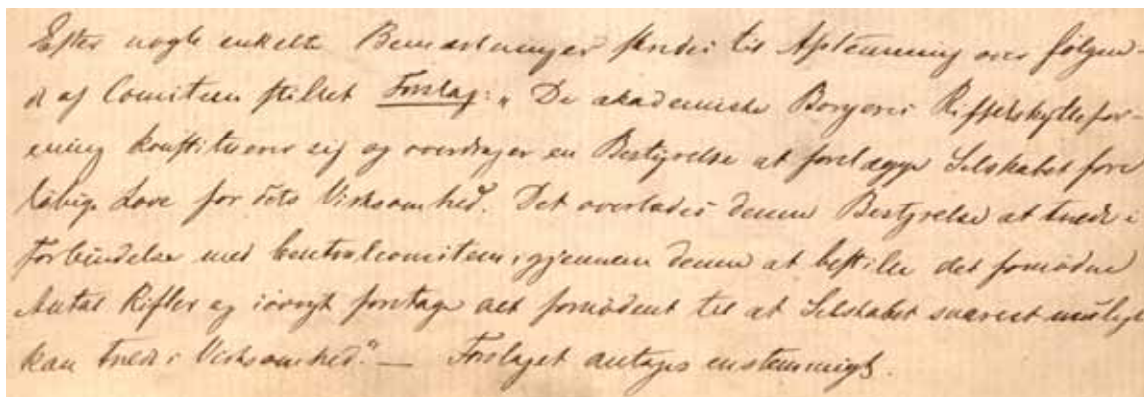 Efter nogle enkelte Bemærkninger skrides til Afstemning over følgen-
de af Comiteen stillet Forslag: „De akademiske Borgeres Riffelskytterfor-
ening konstituerer sig og overdrager en Bestyrelse at forelægge Selskabet fore
løbige Love for dets Virksomhed. Det overlades denne Bestyrelse at træde i
Forbindelse med Centralcomiteen, gjennem denne at bestille det fornødne
Antal Rifler og iøvrigt foretage det fornødent til at Selskabet snarest muligt
kan træde i Virksomhed." — Forslaget antages enstemmigt.